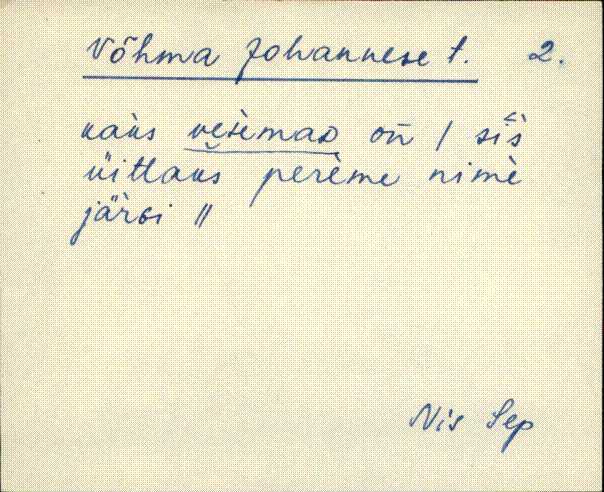 Võhma Johannese t. 2.
kaks vesemad on / sìs
üittaks perème nimè
järbi //
Nis Sep